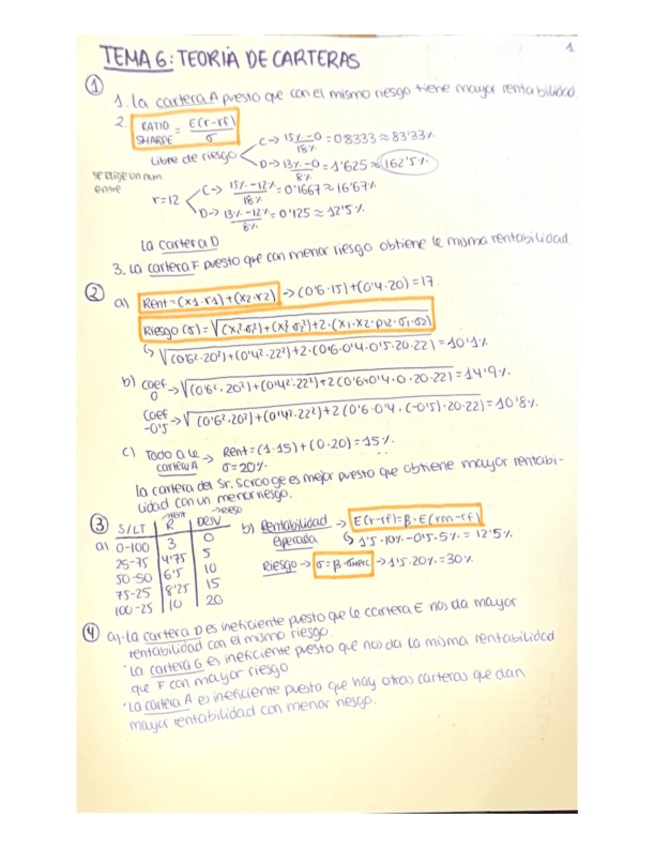 1
TEMA 6: TEORÍA DE CARTERAS
①
1. La cartera A puesto que con el mismo riesgo tiene mayor rentabilidad.
2. RATIO SHARPE = E(r-rf) / σ
Libre de riesgo
C→ 15%-0 / 18% = 0'8333 ≈ 83'33%
D→ 13%-0 / 8% = 1'625 ≈ 162'5%
se elige un num entre
r=12
C→ 15%-12% / 18% = 0'1667 ≈ 16'67%
D→ 13%-12% / 8% = 0'125 ≈ 12'5%
La cartera D
3. La cartera F puesto que con menor riesgo obtiene la misma rentabilidad.
②
a) Rent = (x1·r1)+(x2·r2) → (0'6·15)+(0'4·20)=17
Riesgo (σ) = √(x₁²·σ₁²)+(x₂²·σ₂²)+2·(x1·x2·p12·σ1·σ2)
↳ √(0'6²·20²)+(0'4²·22²)+2·(0'6·0'4·0'5·20·22) = 10'1%
b) coef 0 → √(0'6²·20²)+(0'4²·22²)+2(0'6·0'4·0·20·22) = 14'9%
Coef -0'5 → √(0'6²·20²)+(0'4²·22²)+2(0'6·0'4·(-0'5)·20·22) = 10'8%
c) Todo a la cartera A → Rent = (1·15)+(0·20)=15%
σ=20%
La cartera del Sr. Scrooge es mejor puesto que obtiene mayor rentabi-
lidad con un menor riesgo.
③
→Rent →RIESGO
S/LT R DESV
a) 0-100 3 0
25-75 4'75 5
50-50 6'5 10
75-25 8'25 15
100-25 10 20
b) Rentabilidad esperada → E(r-rf)=β·E(rm-rf)
↳ 1'5·10%-0'5·5% = 12'5%
Riesgo → σ=β·σmerc → 1'5·20%=30%
④ a)·La cartera D es ineficiente puesto que la cartera E nos da mayor
rentabilidad con el mismo riesgo.
·La cartera G es ineficiente puesto que nos da la misma rentabilidad
que F con mayor riesgo
·La cartera A es ineficiente puesto que hay otras carteras que dan
mayor rentabilidad con menor riesgo.